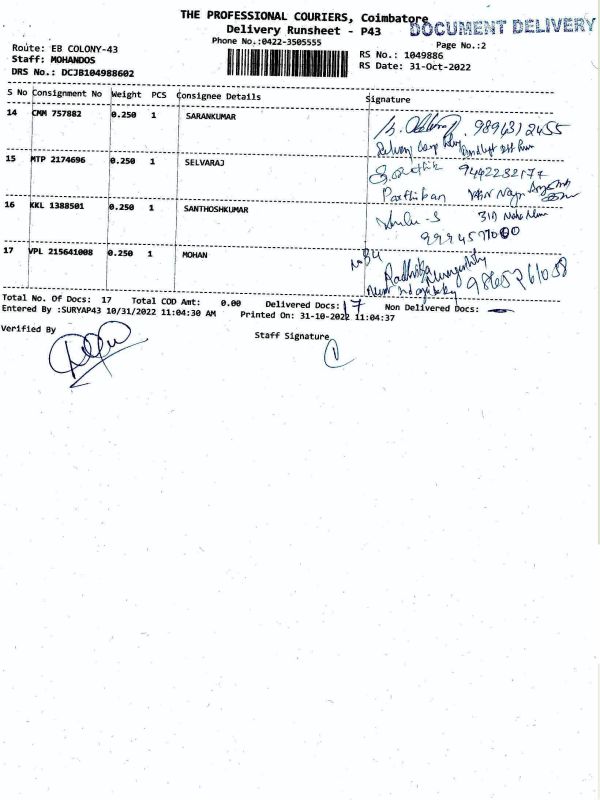 THE PROFESSIONAL COURIERS, Coimbatore
DOCUMENT DELIVERY
Delivery Runsheet - P43
Phone No.:0422-3505555
Page No.:2
Route: EB COLONY-43
RS No.: 1049886
Staff: MOHANDOS
RS Date: 31-Oct-2022
DRS No.: DCJB104988602
S No Consignment No Weight PCS Consignee Details Signature
14 CMM 757882 0.250 1 SARANKUMAR
15 MTP 2174696 0.250 1 SELVARAJ
9442232177
Parthiban
16 KKL 1388501 0.250 1 SANTHOSHKUMAR
17 VPL 215641008 0.250 1 MOHAN
Radhika
9865261058
Total No. Of Docs: 17 Total COD Amt: 0.00 Delivered Docs: 17 Non Delivered Docs: —
Entered By :SURYAP43 10/31/2022 11:04:30 AM Printed On: 31-10-2022 11:04:37
Verified By
Staff Signature